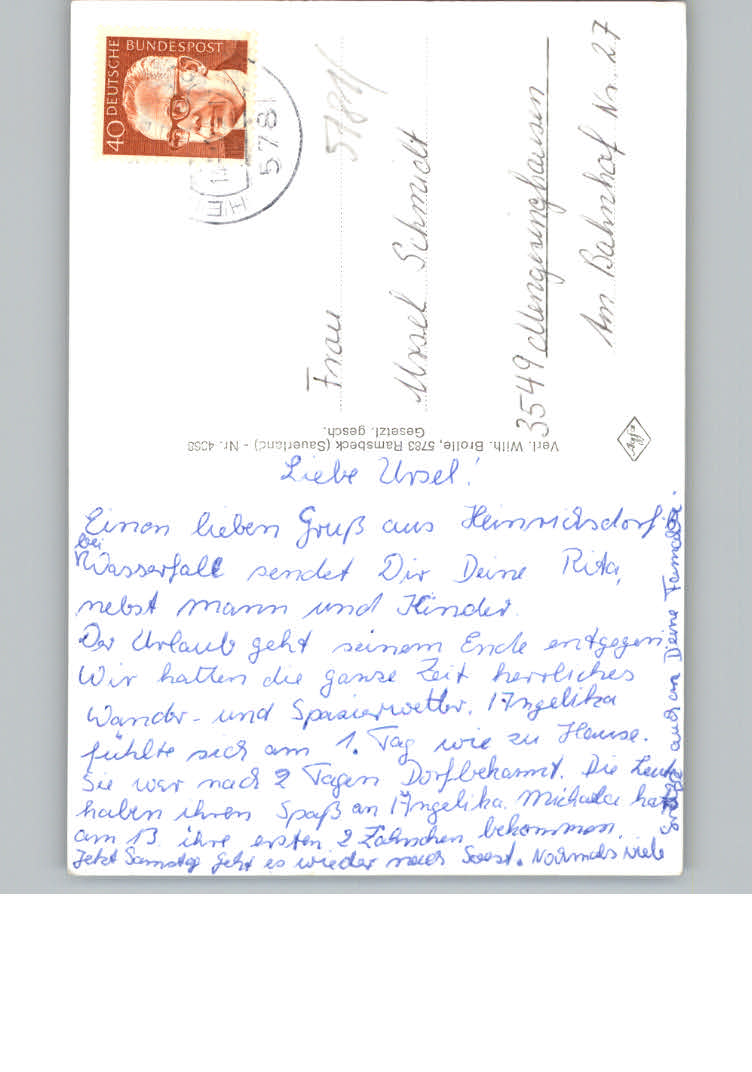 DEUTSCHE BUNDESPOST
40
5781
5781
Frau
Ursel Schmidt
3549 Mengeringhausen
Am Bahnhof Nr. 27
Verl. Wilh. Brolle, 5783 Ramsbeck (Sauerland) - Nr. 4368
Gesetzl. gesch.
Liebe Ursel!
Einen lieben Gruß aus Heinrichsdorf
bei
Wasserfall sendet Dir Deine Rita,
nebst Mann und Kinder.
Der Urlaub geht seinem Ende entgegen.
Wir hatten die ganze Zeit herrliches
Wander- und Spazierwetter. Angelika
fühlte sich am 1. Tag wie zu Hause.
Sie war nach 2 Tagen Dorfbekannt. Die Leute
haben ihren Spaß an Angelika. Michaela hat
am 13. ihre ersten 2 Zähnchen bekommen.
Jetzt Samstag geht es wieder nach Soest. Nochmals viele
Grüße auch an Deine Familie.